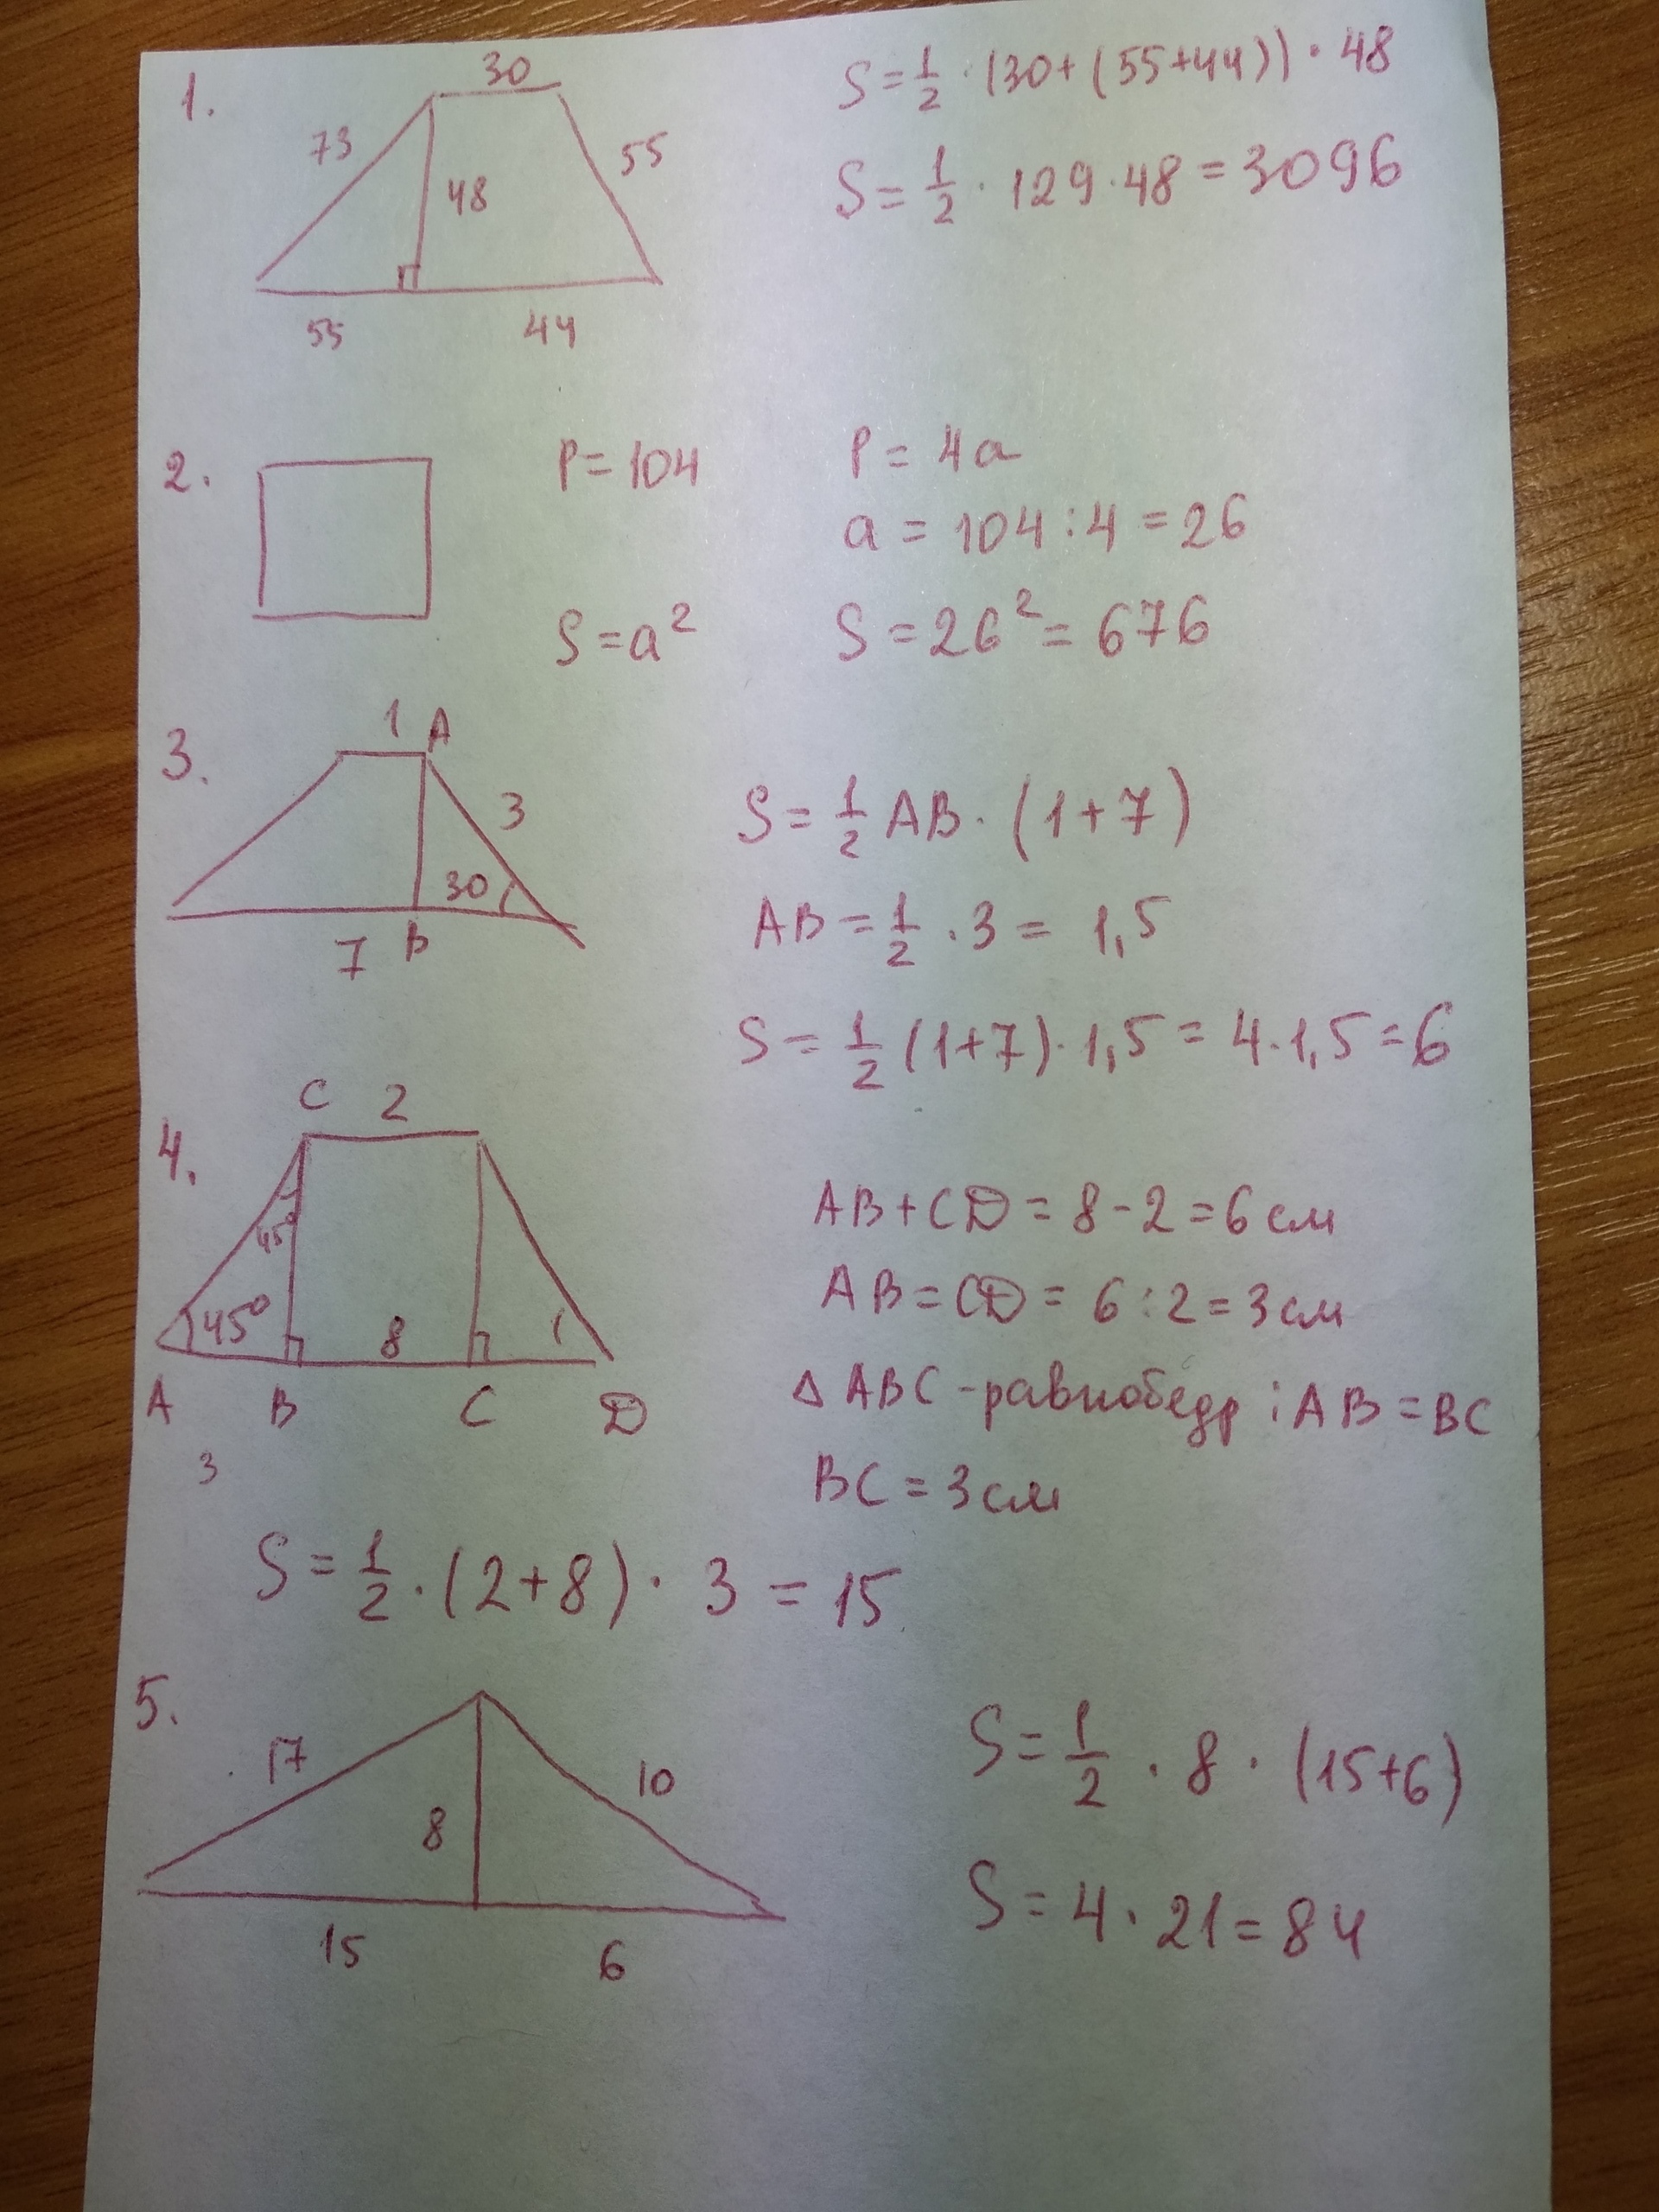 1.
30
73
48
55
55
44
S = 1/2 · (30 + (55+44)) · 48
S = 1/2 · 129 · 48 = 3096
2.
P = 104
P = 4a
a = 104 : 4 = 26
S = a²
S = 26² = 676
3.
1 A
3
30
7 B
S = 1/2 AB · (1 + 7)
AB = 1/2 · 3 = 1,5
S = 1/2 (1+7) · 1,5 = 4 · 1,5 = 6
4.
C 2
45°
45°
8
A B C D
3
AB + CD = 8 - 2 = 6 см
AB = CD = 6 : 2 = 3 см
Δ ABC - равнобедр ; AB = BC
BC = 3 см
S = 1/2 · (2 + 8) · 3 = 15
5.
17
10
8
15
6
S = 1/2 · 8 · (15+6)
S = 4 · 21 = 84